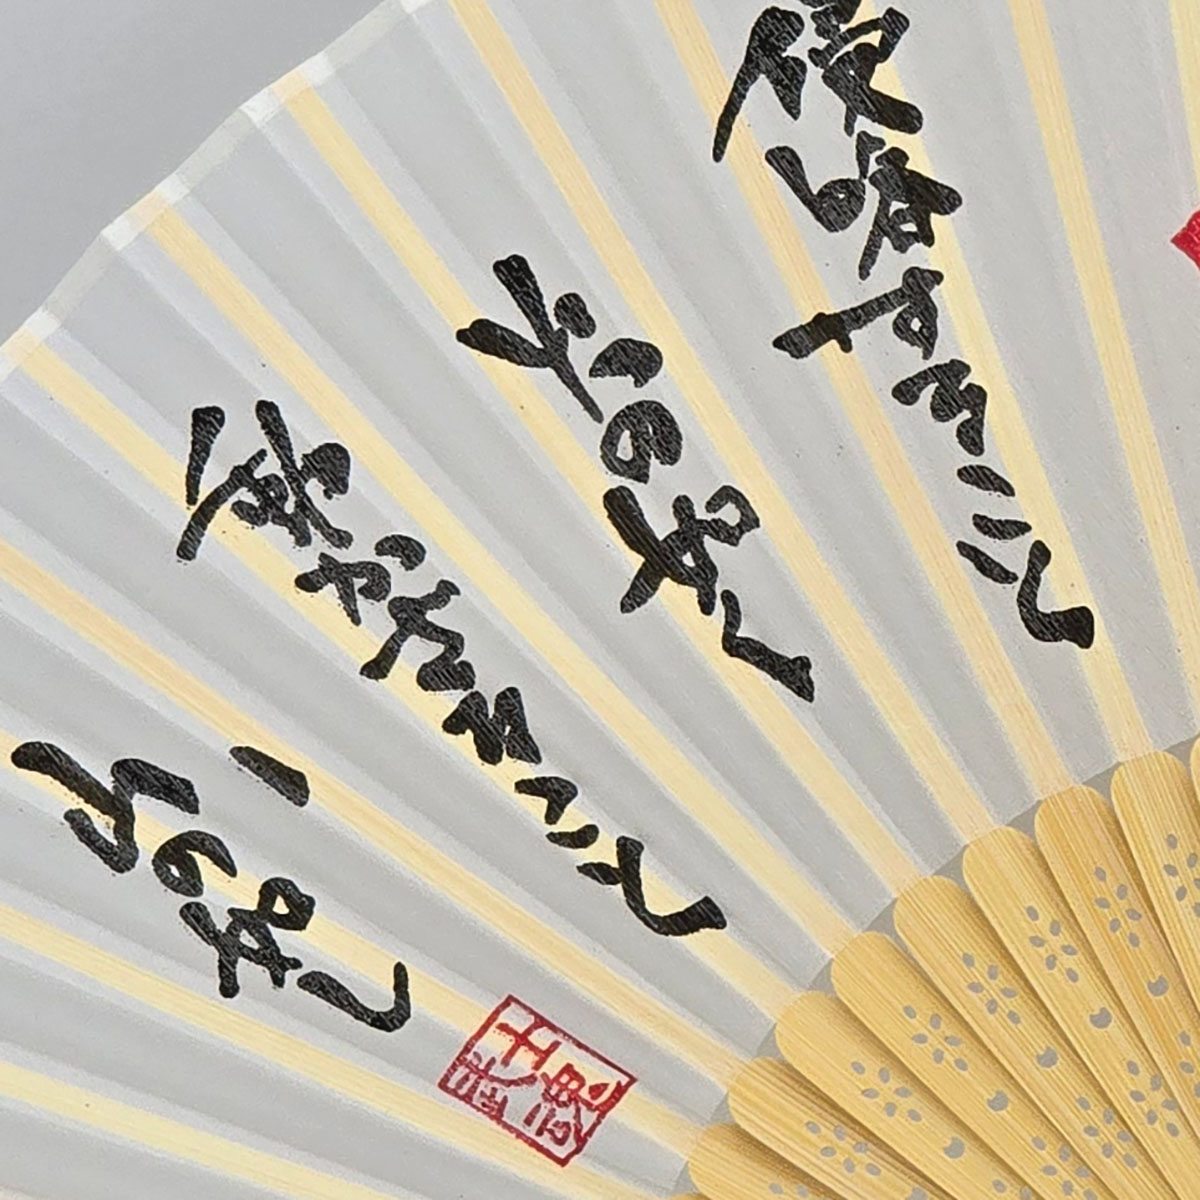 侵略すること
火の如く
動かざること
山の如し